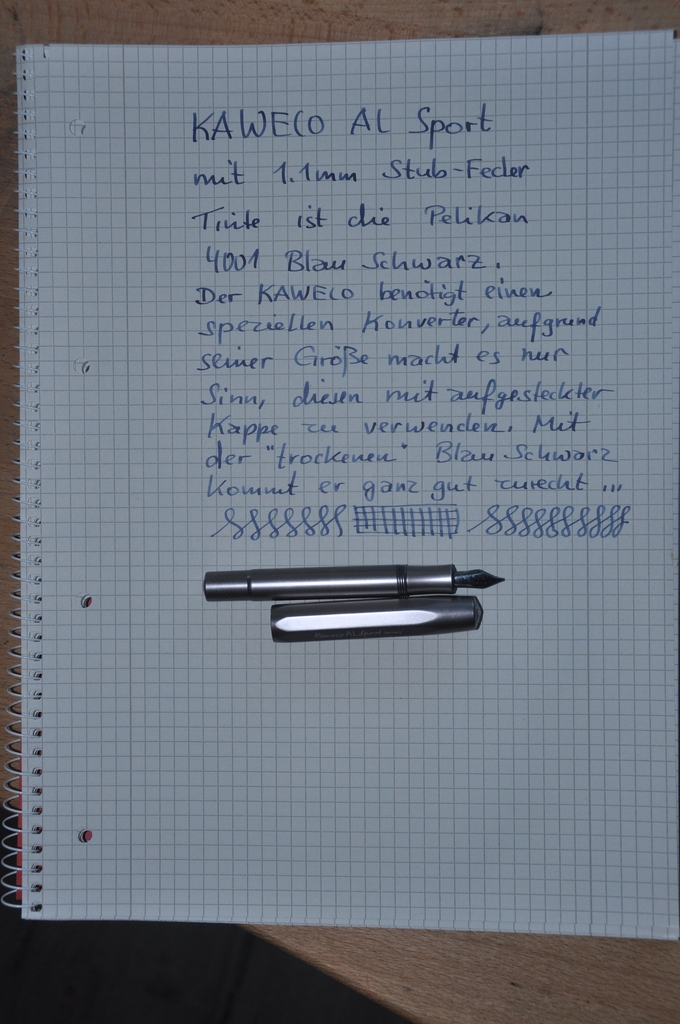 KAWECO AL Sport
mit 1.1mm Stub-Feder
Tinte ist die Pelikan
4001 Blau Schwarz.
Der KAWECO benötigt einen
speziellen Konverter, aufgrund
seiner Größe macht es nur
Sinn, diesen mit aufgesteckter
Kappe zu verwenden. Mit
der "trockenen" Blau-Schwarz
kommt er ganz gut zurecht ...
Kaweco AL Sport